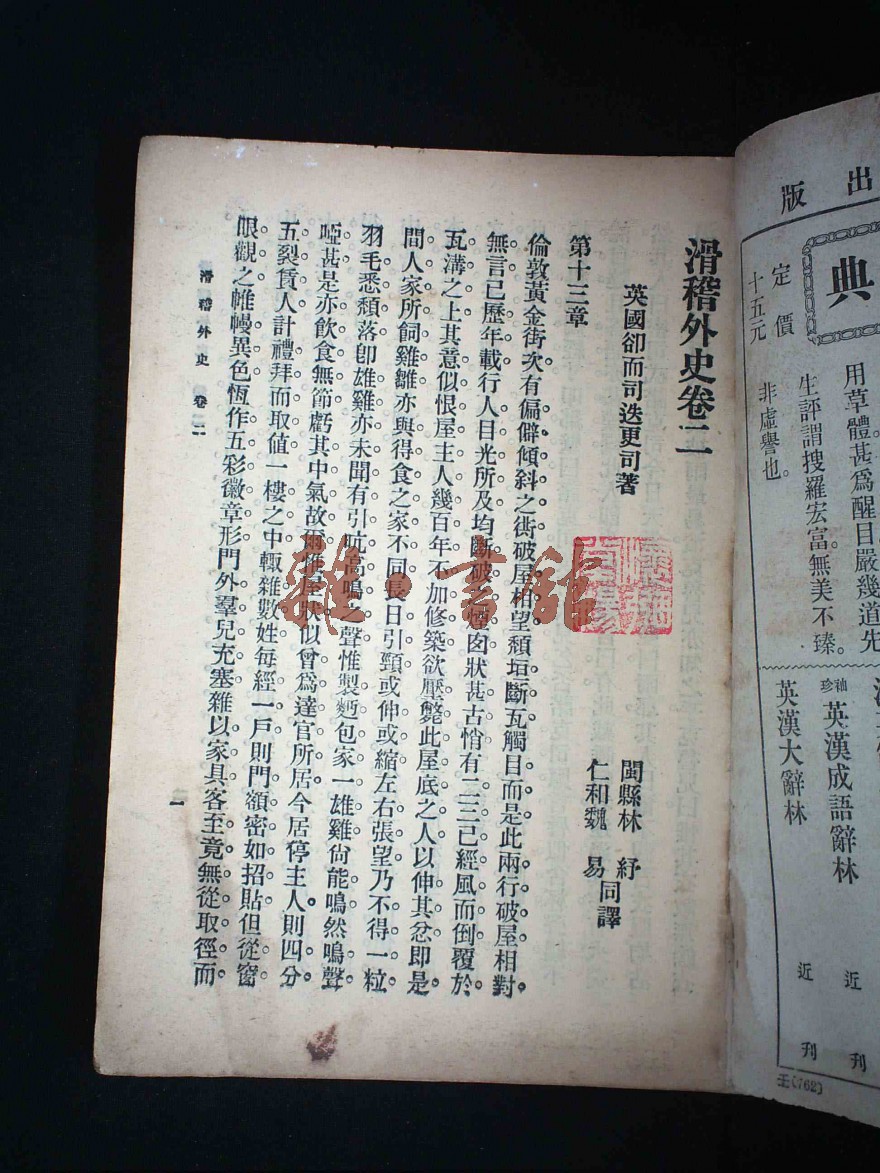 出版
典
定價
十五元
用草體甚爲醒目嚴幾道先
生評謂搜羅宏富無美不臻
非虛譽也。
袖珍英漢成語辭林
近刊
英漢大辭林
近刊
王(762)
滑稽外史卷二
英國卻而司迭更司著
閩縣林紓
仁和魏易同譯
第十三章
倫敦黃金街次有偏僻傾斜之街破屋相望頹垣斷瓦觸目而是此兩行破屋相對
無言已歷年載行人目光所及均斷破之煙囪狀甚古悄有二三已經風而倒覆於
瓦溝之上其意似恨屋主人幾百年不加修築欲壓斃此屋底之人以伸其忿即是
間人家所飼雞雛亦與得食之家不同長日引頸或伸或縮左右張望乃不得一粒
羽毛悉頹落卽雄雞亦未聞有引吭高鳴之聲惟製麪包家一雄雞尙能鳴然鳴聲
啞甚是亦飲食無節虧其中氣故爾惟屋狀似曾爲達官所居今居停主人則四分
五裂賃人計禮拜而取值一樓之中輒雜數姓每經一戶則門額密如招貼但從窗
眼觀之帷幔異色恆作五彩徽章形門外羣兒充塞雜以家具客至竟無從取徑而
滑稽外史 卷二
一
雜·書館